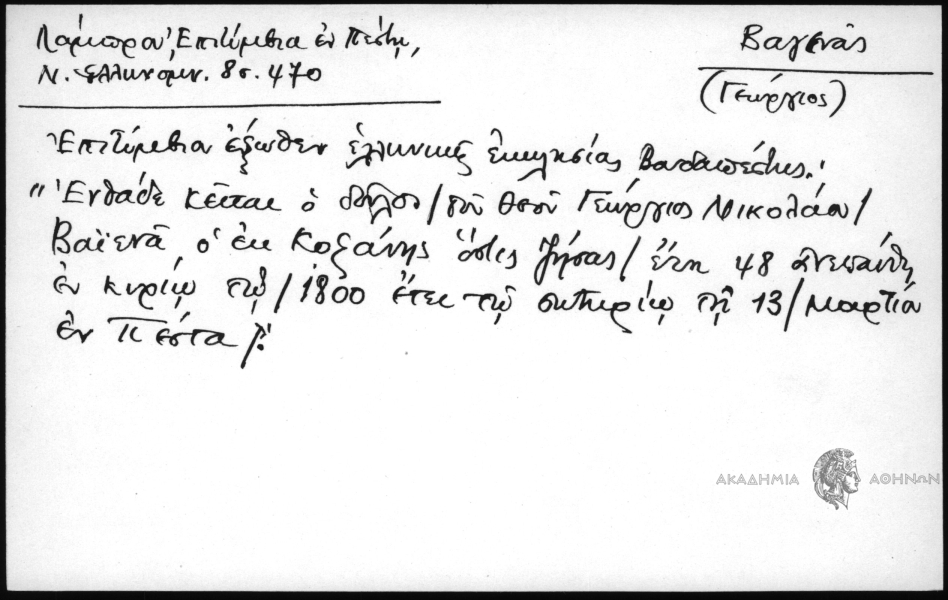 Λάμπρου, Επιτύμβια ἐν Πέστῃ,
Ν. Ἑλληνομν. 8σ. 470
Βαγενᾶς
(Γεώργιος)
Ἐπιτύμβιον ἔξωθεν ἑλληνικῆς ἐκκλησίας Βουδαπέστης:
"Ἐνθάδε κεῖται ὁ δοῦλος/τοῦ Θεοῦ Γεώργιος Νικολάου/
Βαϊενᾶ, ὁ ἐκ Κοζάνης ὅστις ζήσας/ἔτη 48 ἀνεπαύθη
ἐν κυρίῳ τῷ/1800 ἔτει τῷ σωτηρίῳ τῇ 13/Μαρτίου
ἐν Πέστα/:
ΑΚΑΔΗΜΙΑ ΑΘΗΝΩΝ